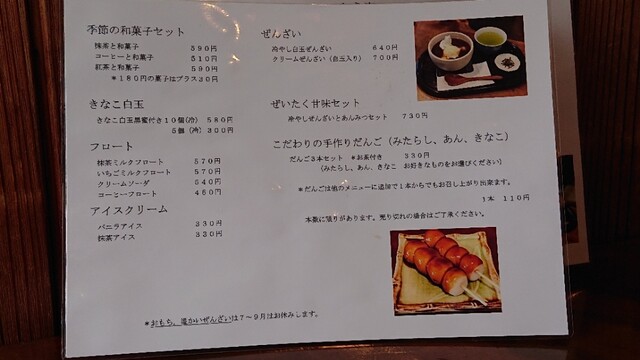 季節の和菓子セット
抹茶と和菓子 590円
コーヒーと和菓子 510円
紅茶と和菓子 590円
*180円の菓子はプラス30円
きなこ白玉
きなこ白玉黒蜜付き10個(冷) 580円
5個(冷) 300円
フロート
抹茶ミルクフロート 570円
いちごミルクフロート 570円
クリームソーダ 640円
コーヒーフロート 460円
アイスクリーム
バニラアイス 330円
抹茶アイス 330円
ぜんざい
冷やし白玉ぜんざい 640円
クリームぜんざい(白玉入り) 700円
ぜいたく甘味セット
冷やしぜんざいとあんみつセット 730円
こだわりの手作りだんご(みたらし、あん、きなこ)
だんご3本セット *お茶付き 330円
(みたらし、あん、きなこ お好きなものをお選びください)
*だんごは他のメニューに追加で1本からでもお召し上がり出来ます。
1本 110円
本数に限りがあります。売り切れの場合はご了承ください。
*おもち、温かいぜんざいは7~9月はお休みします。